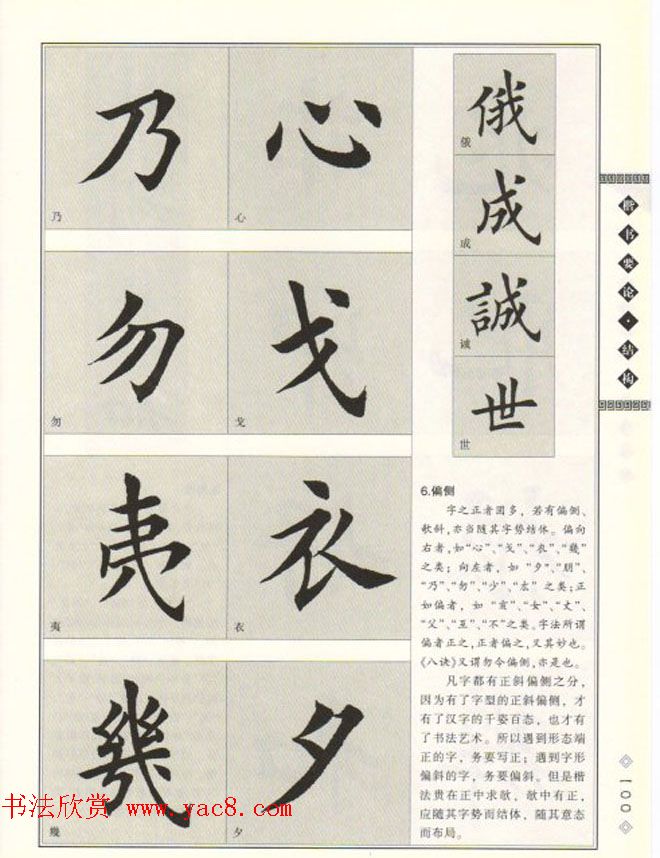 乃
心
乃
心
勿
戈
勿
戈
夷
衣
夷
衣
幾
夕
幾
夕
俄
俄
成
成
誠
诚
世
世
6.偏侧
字之正者固多，若有偏侧、
欹斜，亦当随其字势结体。偏向
右者，如“心”、“戈”、“衣”、“幾”
之类；向左者，如“夕”、“朋”、
“乃”、“勿”、“少”、“厷”之类；正
如偏者，如“亥”、“女”、“丈”、
“父”、“互”、“不”之类。字法所谓
偏者正之，正者偏之，又其妙也。
《八诀》又谓勿令偏侧，亦是也。
凡字都有正斜偏侧之分，
因为有了字型的正斜偏侧，才
有了汉字的千姿百态，也才有
了书法艺术。所以遇到形态端
正的字，务要写正；遇到字形
偏斜的字，务要偏斜。但是楷
法贵在正中求欹，欹中有正，
应随其字势而结体，随其意态
而布局。
楷书要论·结构
一〇〇
书法欣赏 www.yac8.com